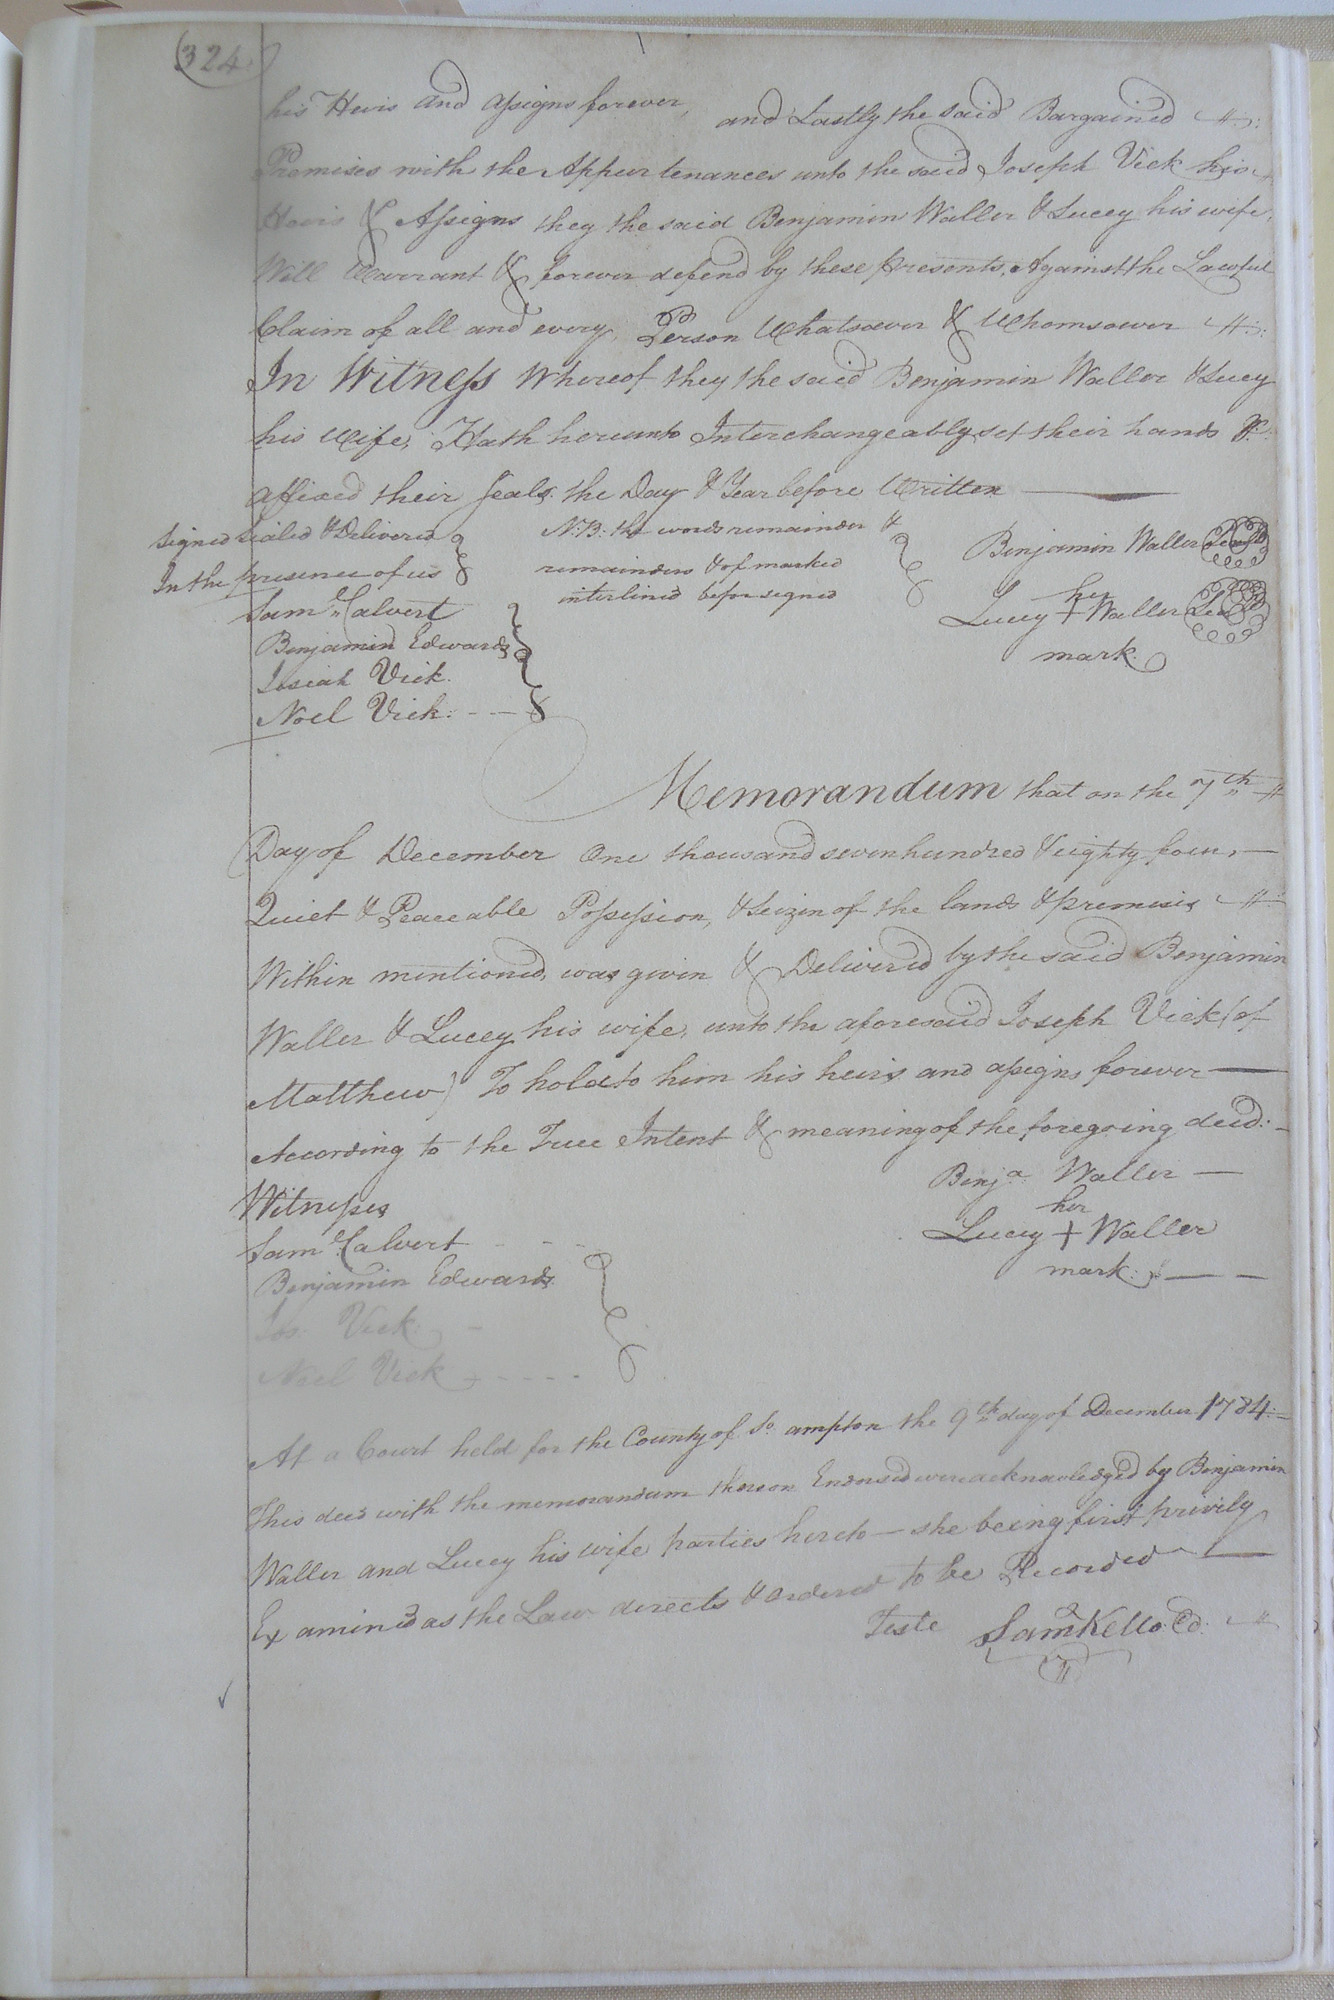 (324)
his Heirs and assigns forever, and Lastly the said Bargained
Premises with the Appurtenances unto the said Joseph Vick his
Heirs & Assigns they the said Benjamin Waller & Lucey his wife,
Will Warrant & forever defend by these presents, Against the Lawful
Claim of all and every, Person Whatsoever & Whomsoever
In Witness Whereof they the said Benjamin Waller & Lucey
his Wife, Hath hereunto Interchangeably set their hands &
affixed their Seals. the Day & Year before Written
Signed Sealed & Delivered
In the presence of us
Saml. Calvert
Benjamin Edwards
Josiah Vick.
Noel Vick:
N:B: the words remainder &
remainders & of marked
interlined before signed
Benjamin Waller Seal
her
Lucey + Waller Seal
mark.
Memorandum that on the 7th
Day of December One thousand seven hundred & eighty four,
Quiet & Peaceable Possession, & Seizin of the lands & premises
Within mentioned, was given & Delivered by the said Benjamin
Waller & Lucey his wife, unto the aforesaid Joseph Vick (of
Matthew) To hold to him his heirs and assigns forever
According to the True Intent & meaning of the foregoing deed:
Benja. Waller
her
Lucey + Waller
mark:
Witnesses
Saml. Calvert
Benjamin Edwards
Jos: Vick
Noel Vick
At a Court held for the County of So.ampton the 9th day of December 1784:
This deed with the memorandum thereon Endorsed were acknowledged by Benjamin
Waller and Lucey his wife parties hereto – she being first privily
Examined as the Law directs & ordered to be Recorded
Teste Saml Kello Cd.